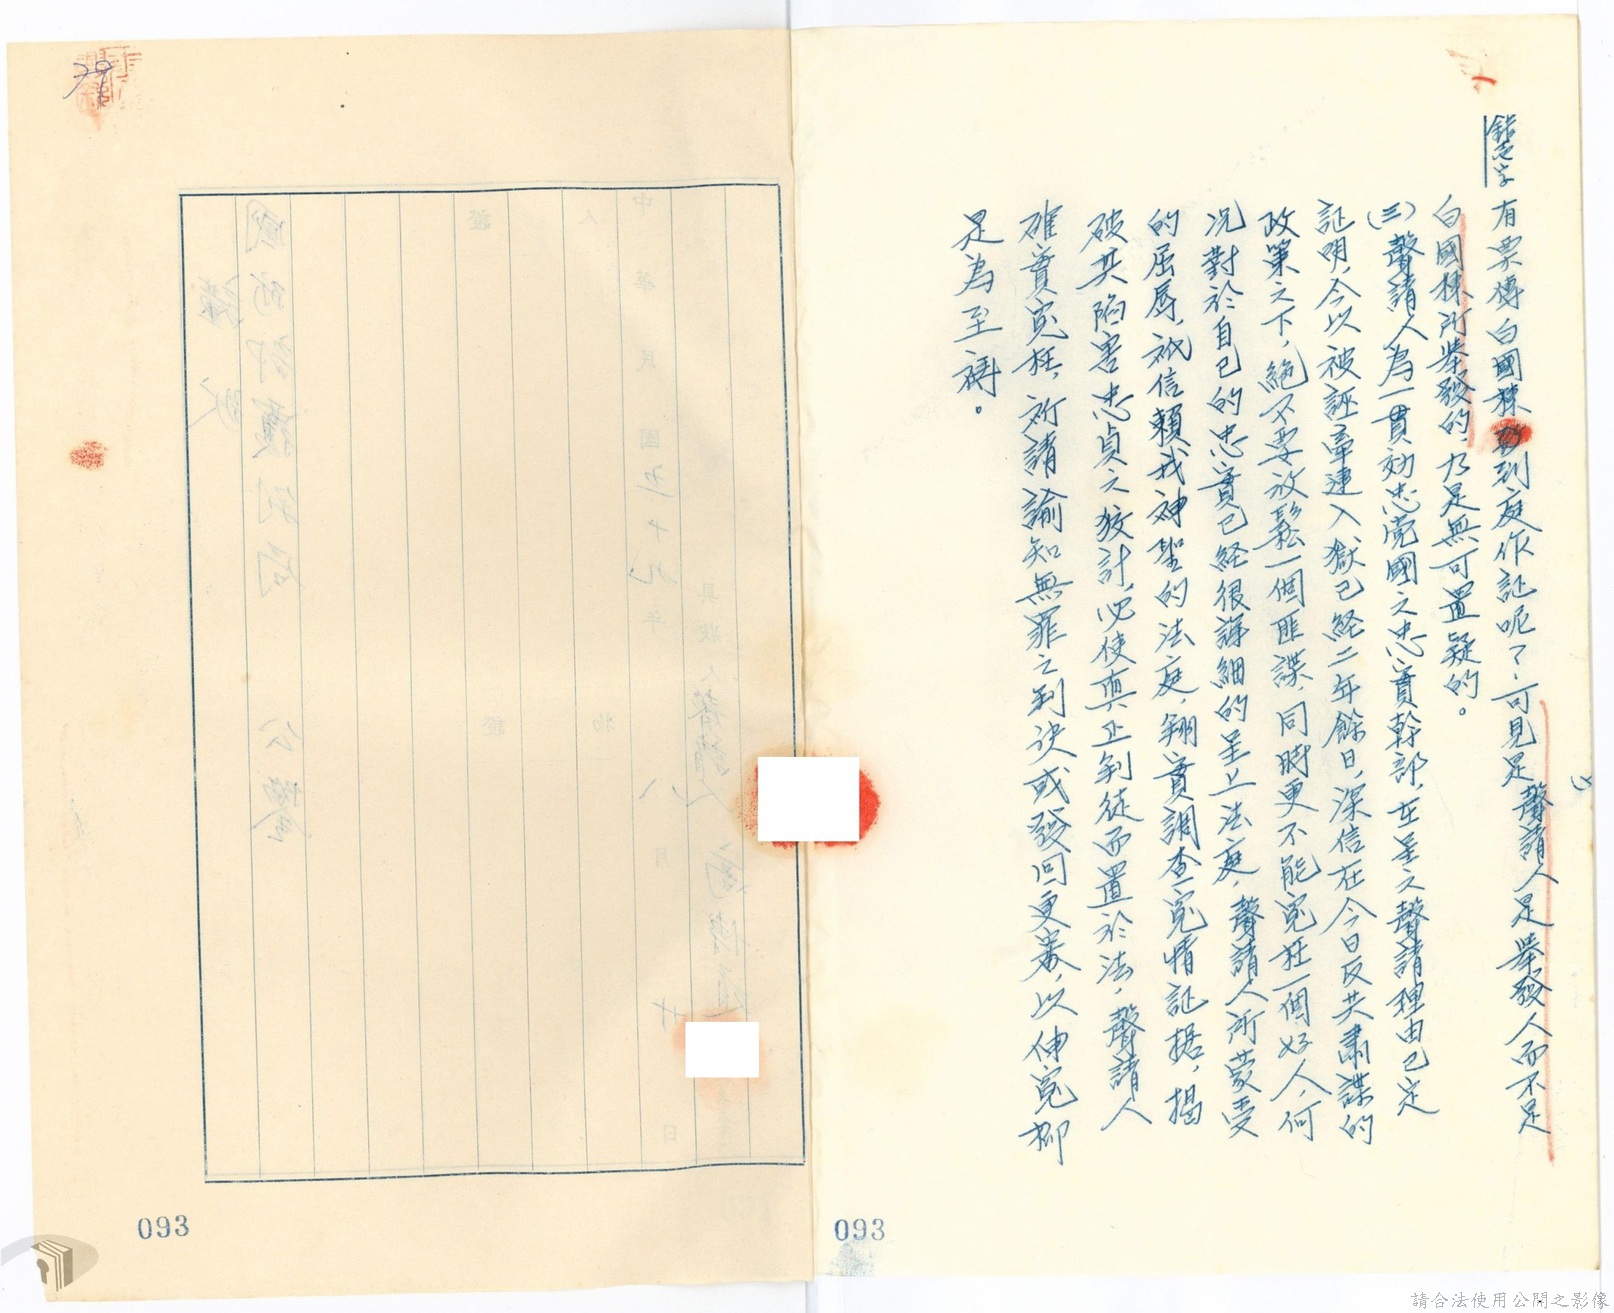 有票傳白國棟到庭作証呢？可見是聲請人是舉發人而不是
白國棟所舉發的，乃是無可置疑的。
(三)聲請人為一貫効忠党國之忠實幹部，在呈之聲請理由已定
証明，今以被誣牽連入獄已経二年餘日，深信在今日反共肅諜的
政策之下，絕不要放鬆一個匪諜，同時更不能寃枉一個好人，何
况對於自己的忠實已経很詳細的呈上法庭，聲請人所蒙受
的屈辱，祇信賴我神聖的法庭，翔實調查寃情証据，揭
破其陷害忠貞之狡計，必使真正刹徒而置於法，聲請人
確實寃枉，祈請諭知無罪之判決或發回更審，以伸寃抑
是為至禱。
093
中華民國五十九年八月十日
具狀人
證人
證物
國防部覆判局
公鑒
093
請合法使用公開之影像